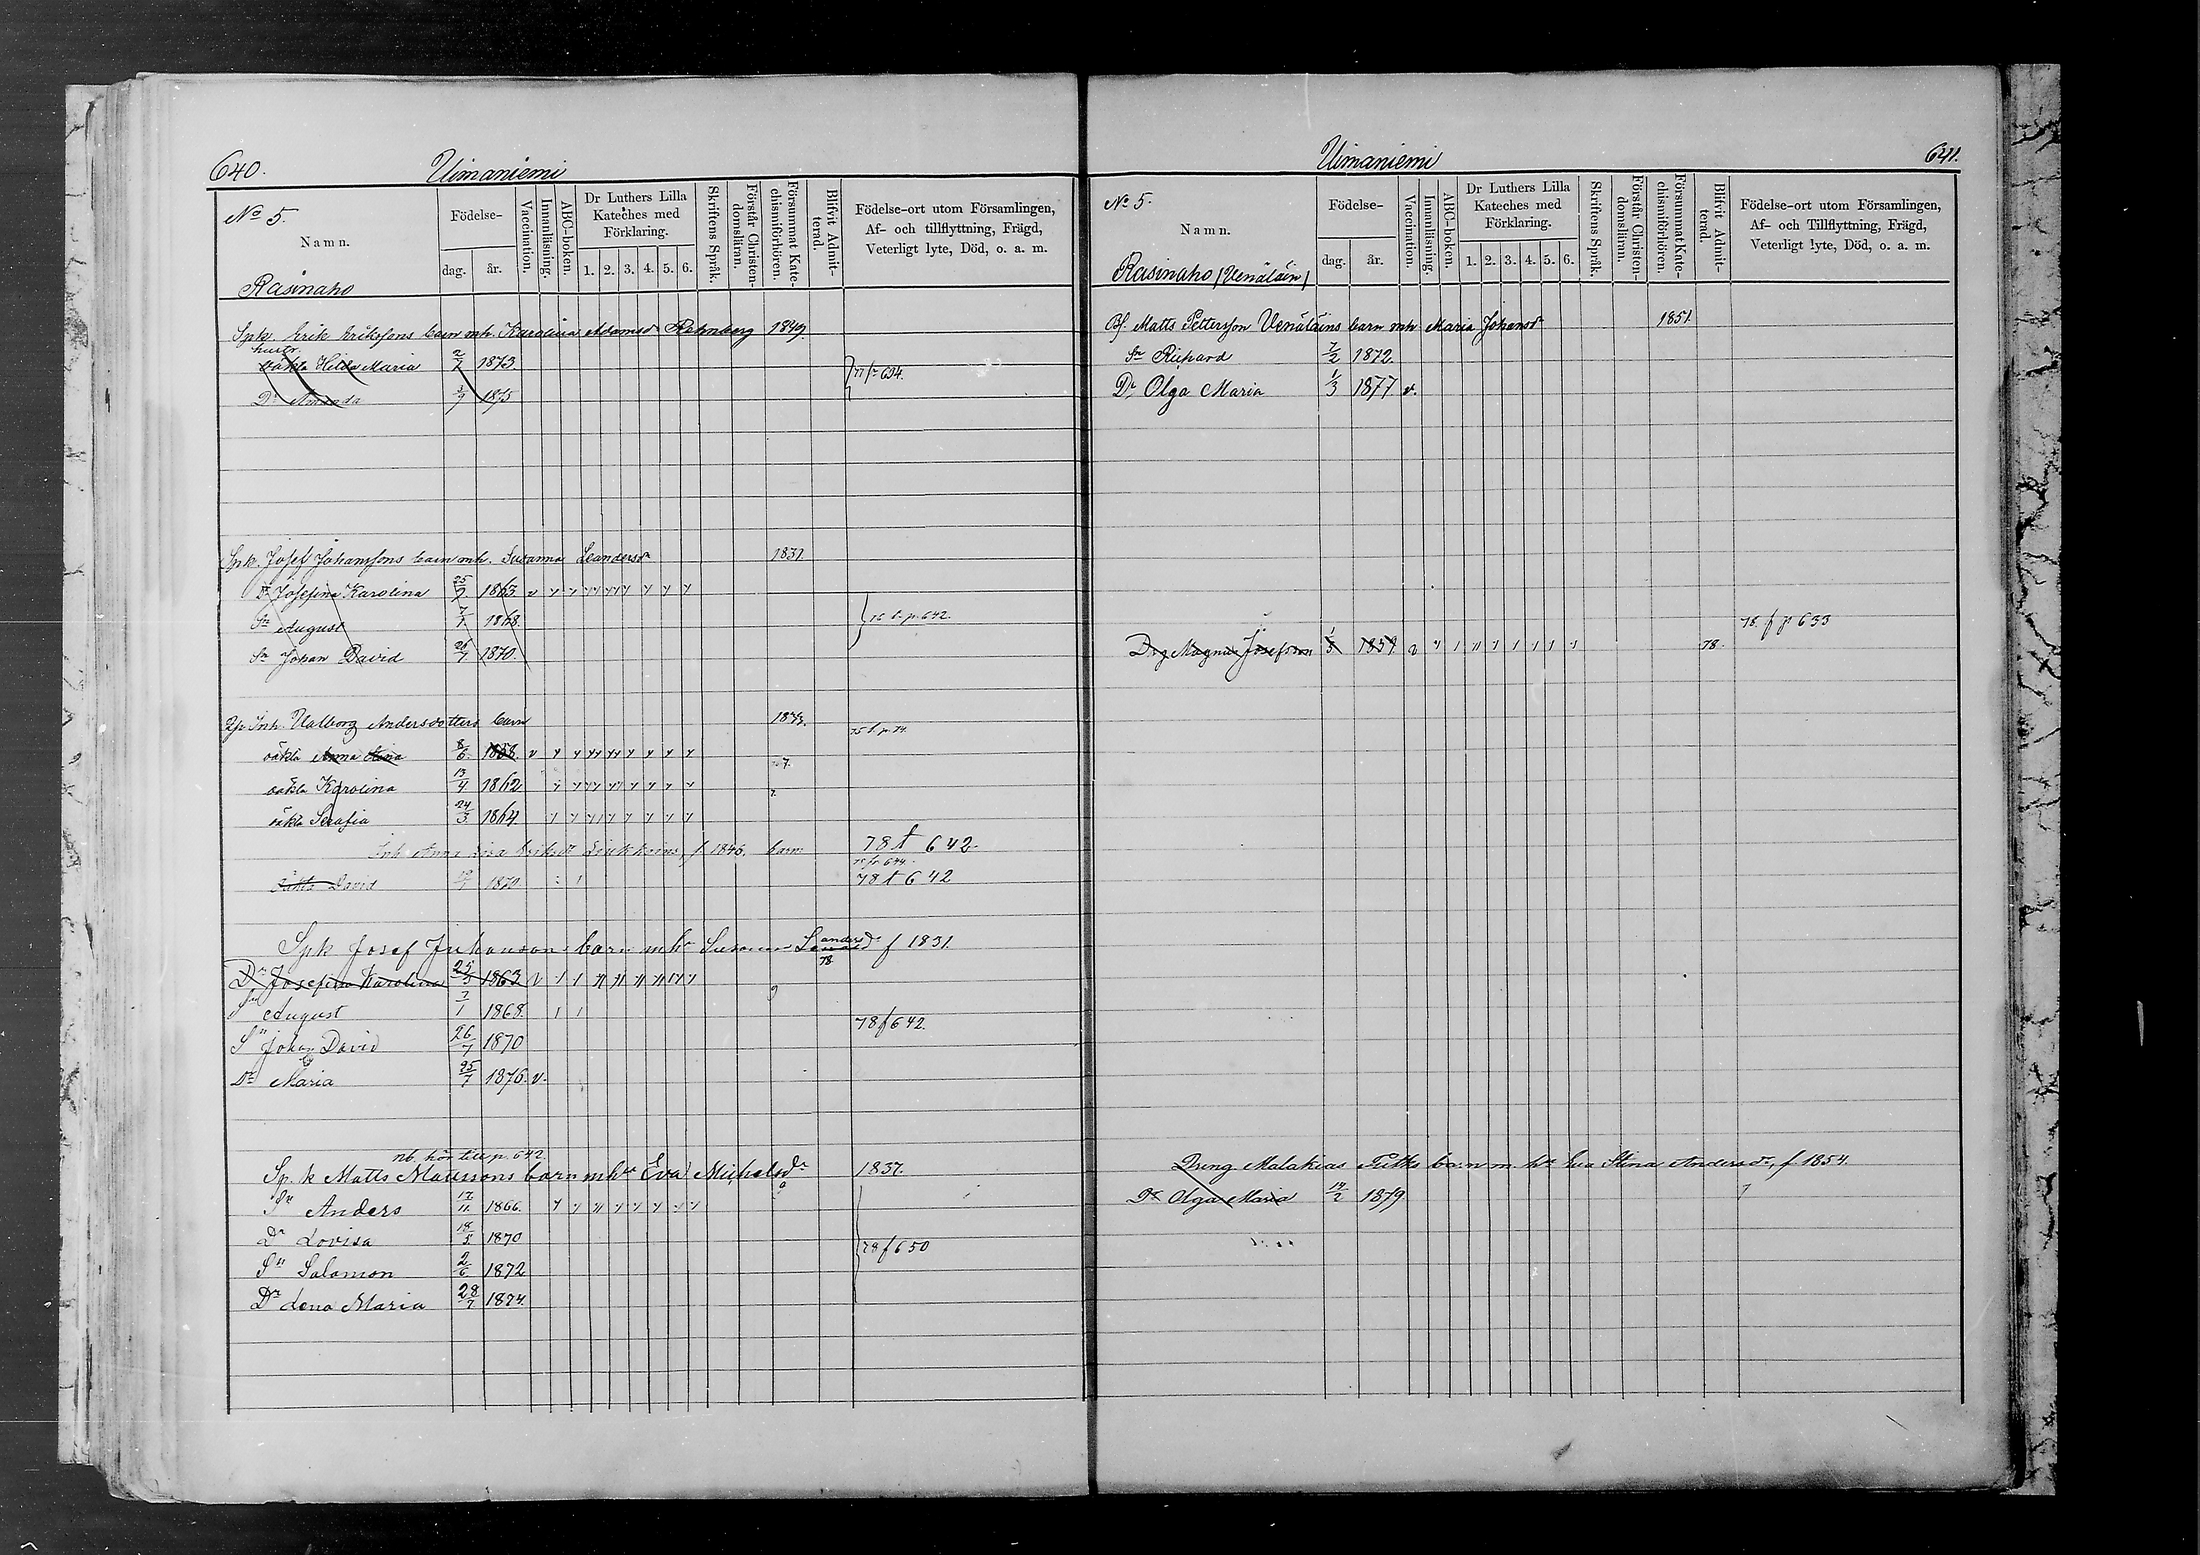 640.
Uimaniemi
No 5.
Namn.
Födelse-
dag. år.
Vaccination.
Innanläsning.
ABC-boken.
Dr Luthers Lilla Kateches med Förklaring.
1. 2. 3. 4. 5. 6.
Skriftens Språk.
Förstår Christendomsläran.
Försummat Katechismiförhören.
Blifvit Admitterad.
Födelse-ort utom Församlingen,
Af- och tillflyttning, Frägd,
Veterligt lyte, Död, o. a. m.
Rasinaho
Spk. Erik Eriksons barn mh. Karolina Adamsdr 1849.
hustr.
oäkta Hilda Maria 2/2 1873.
Dr Amanda 3/9 1875
Spk. Josef Johanssons barn mh. Susanna Leandersdr 1831
Dr Josefina Karolina 1863 v
Sn August 7/1 1868.
76 t. p. 642.
Sn Johan David 26/7 1870.
Inh. Valborg Andersdotters barn
75 t. p. 74.
oäkta Anna Stina 8/6 1858. v
oäkta Karolina 13/4 1862
oäkta Serafia 24/3 1864
Inh. Anna Lisa f. 1846. barn 78 t 642.
oäkta David 1870 78 t 642
Spk Josef Juhanson barn mhu Susanna Leandersdr f 1831.
78
Dr Josefina Karolina 25/3 1863 v
Sn August 7/1 1868.
78 f 642.
Sn Johan David 26/7 1870
Dr Maria 25/7 1876. v.
nb. hör till p. 642.
Sp. k Matts Matssons barn mhu Eva Michelsdr 1837.
Sn Anders 17/11 1866.
Dr Lovisa 18/5 1870
78 f 650
Sn Salomon 2/6 1872
Dr Lena Maria 28/7 1874.
Uimaniemi
641.
No 5.
Namn.
Födelse-
dag. år.
Vaccination.
Innanläsning.
ABC-boken.
Dr Luthers Lilla Kateches med Förklaring.
1. 2. 3. 4. 5. 6.
Skriftens Språk.
Förstår Christendomsläran.
Försummat Katechismiförhören.
Blifvit Admitterad.
Födelse-ort utom Församlingen,
Af- och Tillflyttning, Frägd,
Veterligt lyte, Död, o. a. m.
Rasinaho (Venäläin)
Bf. Matts Pettersson Venäläins barn mh Maria Johansdr 1851
Sn Richard 7/2 1872.
Dr Olga Maria 1/3 1877 v.
78. f p 633
Drg Magnus Josefsson 1859 v 78.
Dreng Malakias barn m. hu Eva Stina Andersdr, f 1854.
Dr Olga Maria 1879